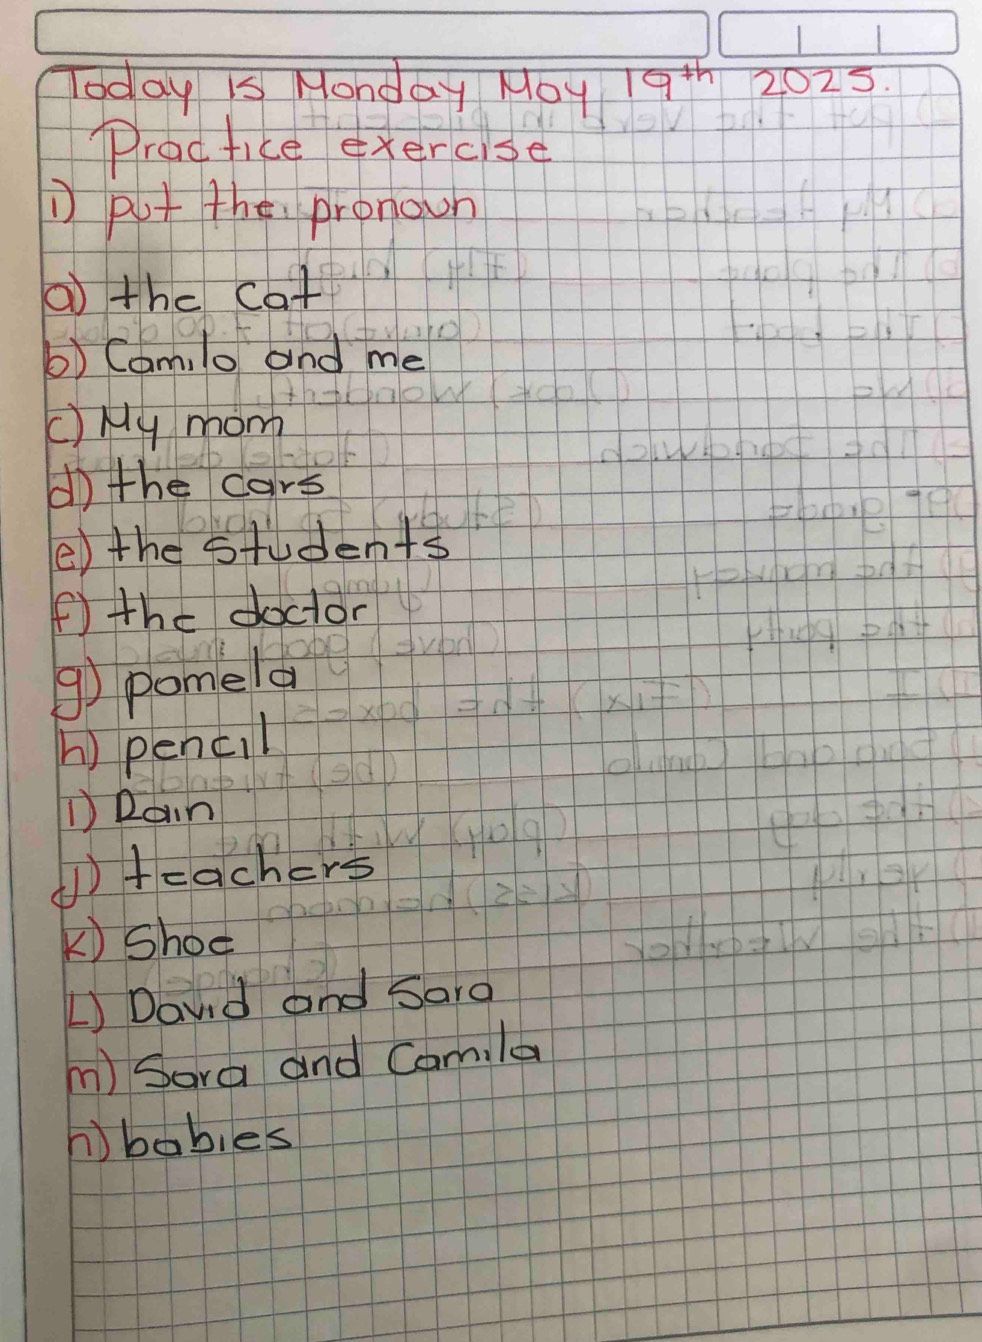 Today is Monday May 19th 2025.
Practice exercise
1) put the pronoun
a) the cat
b) Camilo and me
c) My mom
d) the cars
e) the students
f) the doctor
g) pamela
h) pencil
i) Rain
j) teachers
k) Shoe
L) David and Sara
m) Sara and Camila
n) babies